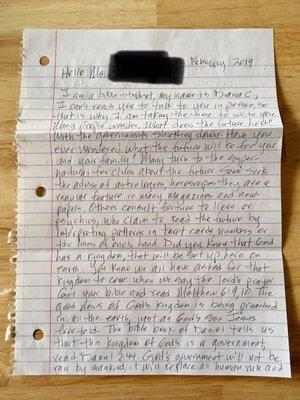 February 2019
Hello Ms.
I am a bible student, my name is Diana C,
I can't reach you to talk to you in person, so
that's why I am taking the time to write you
Many people wonder, What does the future hold?
With the governments shutting down. Have you
ever wondered what the future will be for you
and you family? Many turn to the super-
natural for clues about the future some seek
the advise of astrologers, horoscopes they are a
regular fixture in many magazines and news
papers. Others consult fortune tellers or
psychics, who claim to read the future by
interpreting patterns in tarot cards numbers or
the lines of one's hand. Did you know that God
has a Kingdom, that will be set up here on
earth. You know we all have asked for that
Kingdom to come when we say the lord's prayer.
Get your bible and read Matthew 6:9,10. The
good news of God's Kingdom is being preached
in all the earth, just as God's son Jesus
foretold. The bible book of Daniel tells us
that this Kingdom of God is a government,
read Daniel 2:44. God's government will not be
ran by mankind, it will replace all human rule and